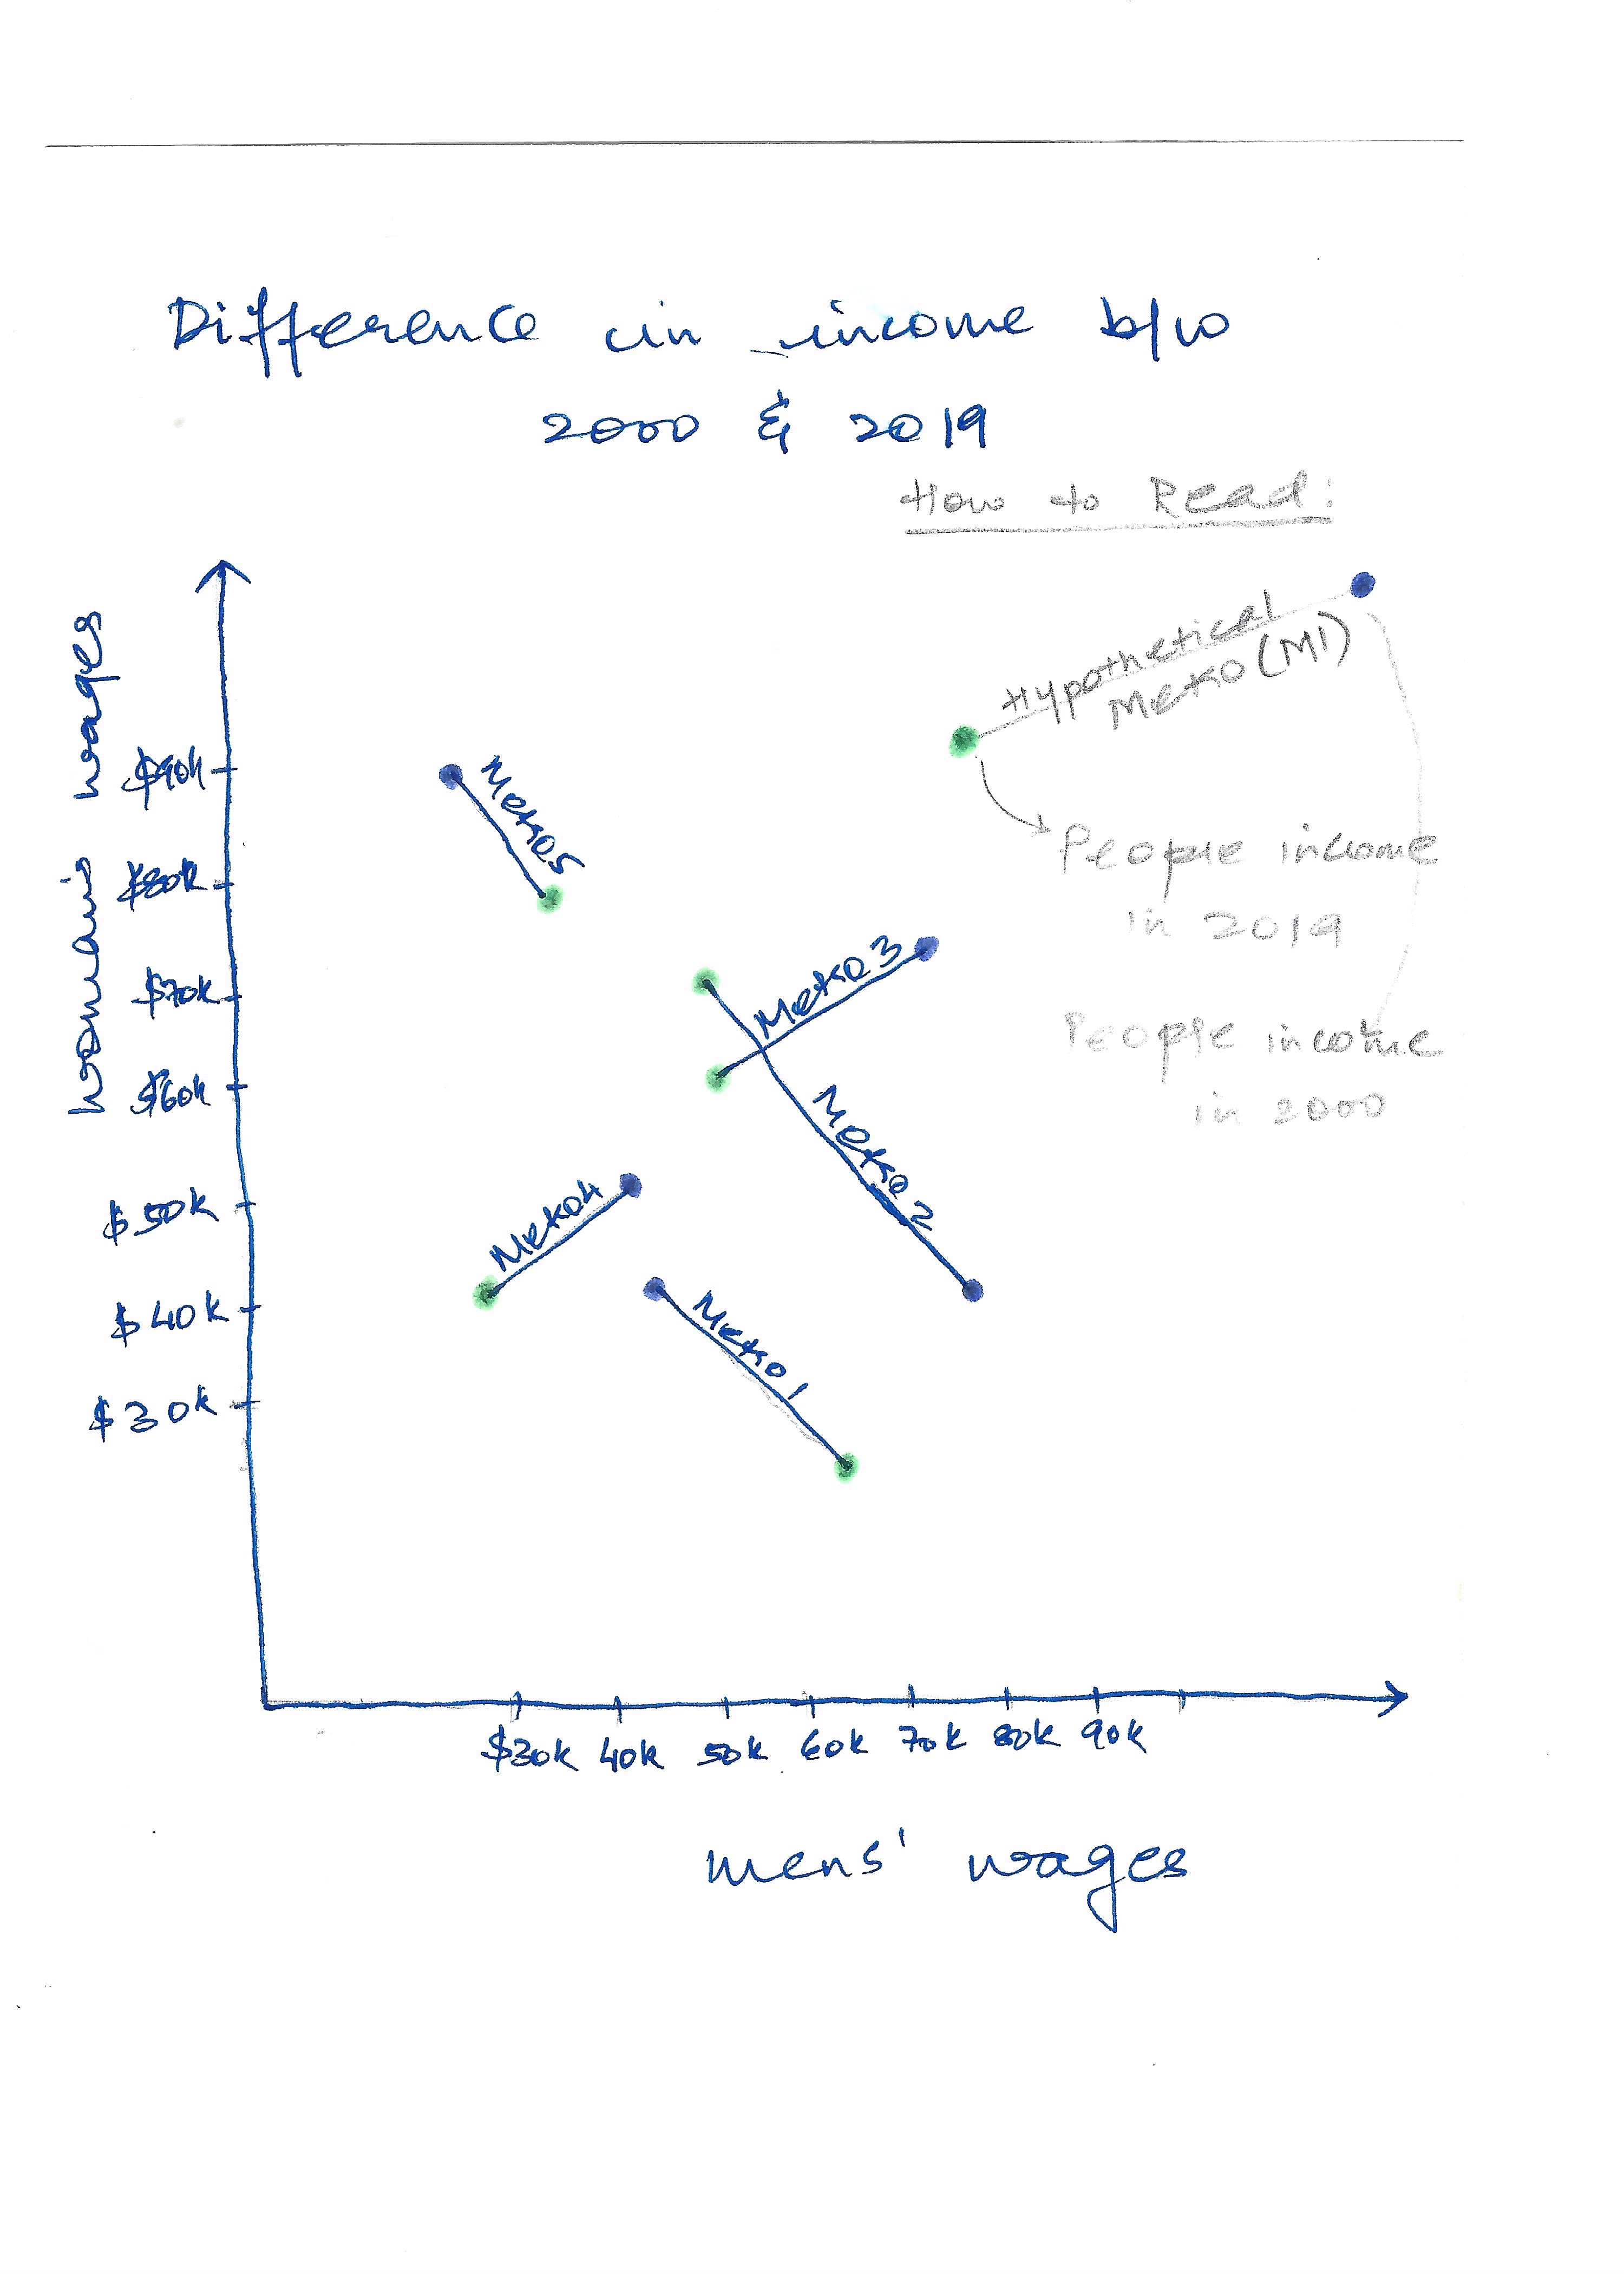 Difference in income b/w
2000 & 2019
How to Read:
Hypothetical
Metro (M1)
People income
in 2019
People income
in 2000
woman's wages
$90k
$80k
$70k
$60k
$50k
$40k
$30k
Metro5
Metro 3
Metro 2
Metro4
Metro 1
$30k 40k 50k 60k 70k 80k 90k
mens' wages